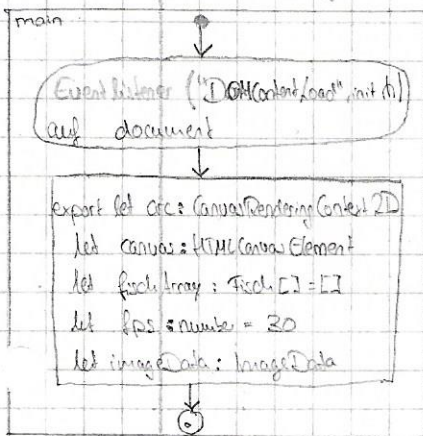 main
Eventlistener ("DOMContentLoad", init())
auf document
export let crc: CanvasRenderingContext2D
let canvas: HTMLCanvasElement
let fischArray: Fisch[] = []
let fps: number = 30
let imageData: ImageData